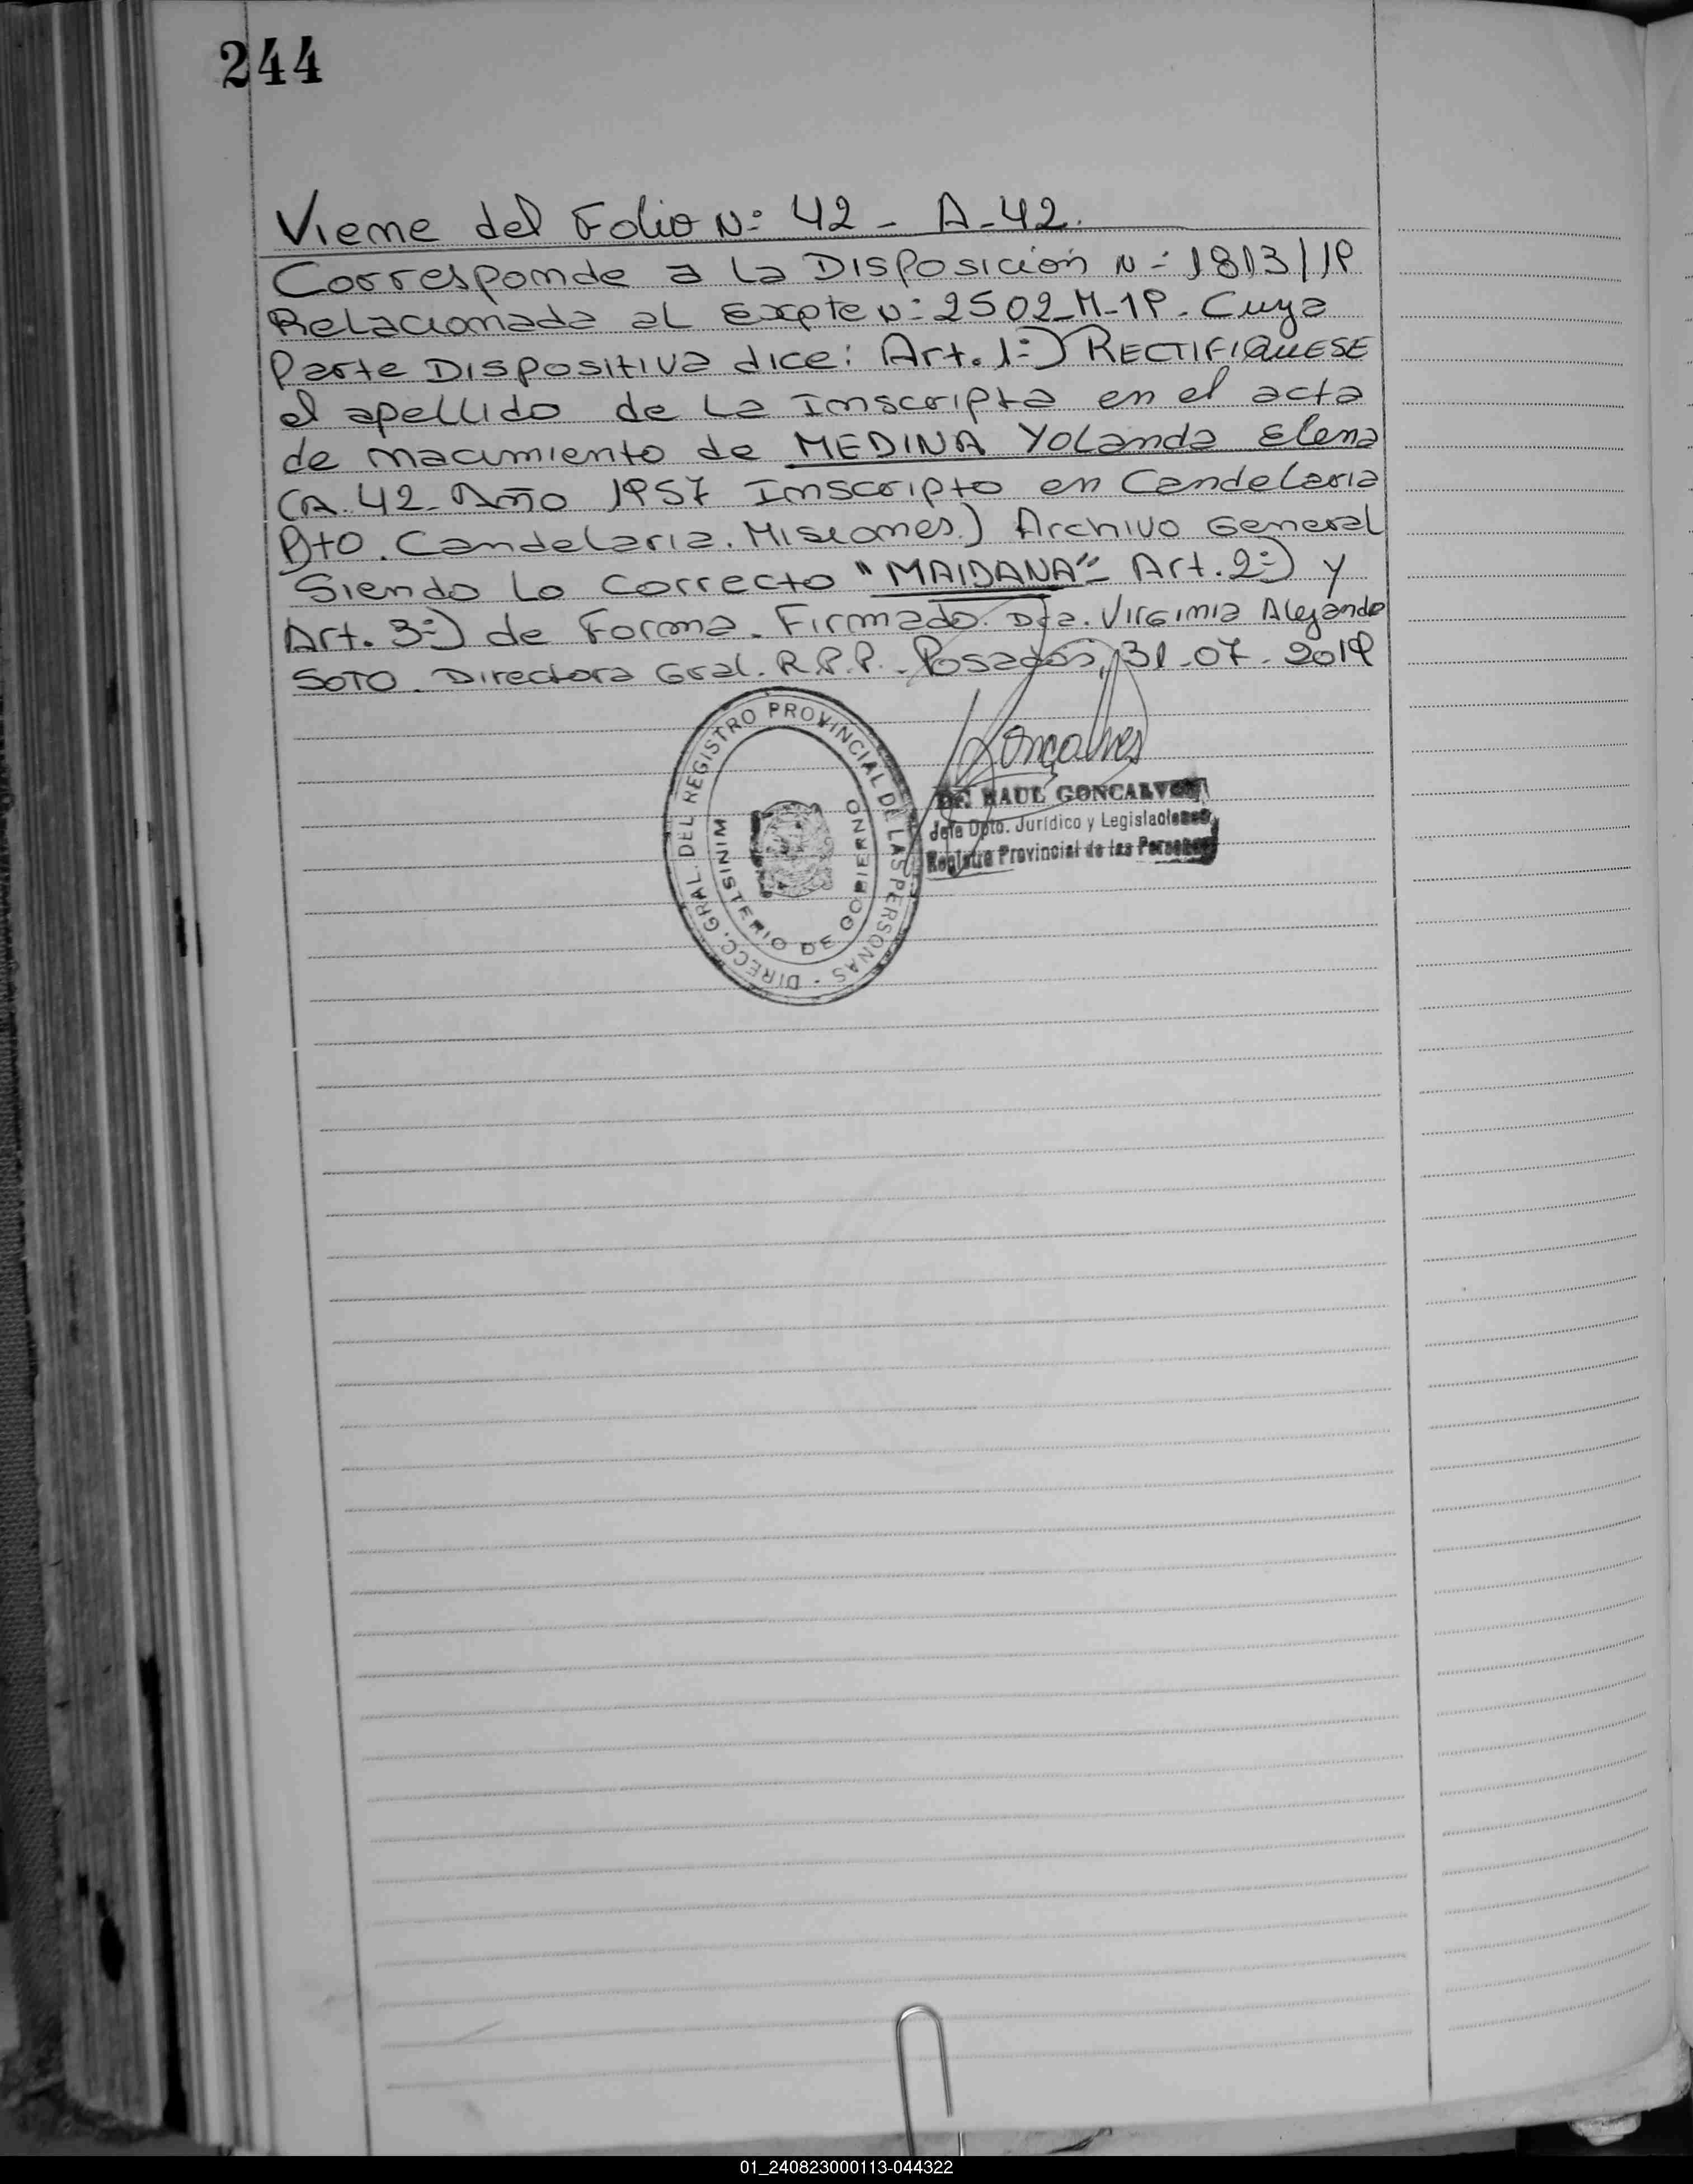 244
Viene del Folio N: 42 - A-42.
Corresponde a La Disposición N-: 1813/19
Relacionada al Expte N: 2502-M-19. Cuya
Parte Dispositiva dice: Art. 1=) RECTIFIQUESE
el apellido de La Inscripta en el acta
de nacimiento de MEDINA Yolanda Elena
(A. 42. Año 1957 Inscripto en Candelaria
Dto. Candelaria. Misiones.) Archivo General
Siendo Lo Correcto "MAIDANA" - Art. 2=) y
Art. 3=) de Forma. Firmado. Dra. Virginia Alejandra
SOTO. Directora Gral. R.P.P. - Posadas, 31-07-2019
DIRECC. GRAL. DEL REGISTRO PROVINCIAL DE LAS PERSONAS -
MINISTERIO DE GOBIERNO
Goncalves
Dr. RAUL GONCALVES
Jefe Dpto. Jurídico y Legislaciones
Registro Provincial de las Personas
01_240823000113-044322